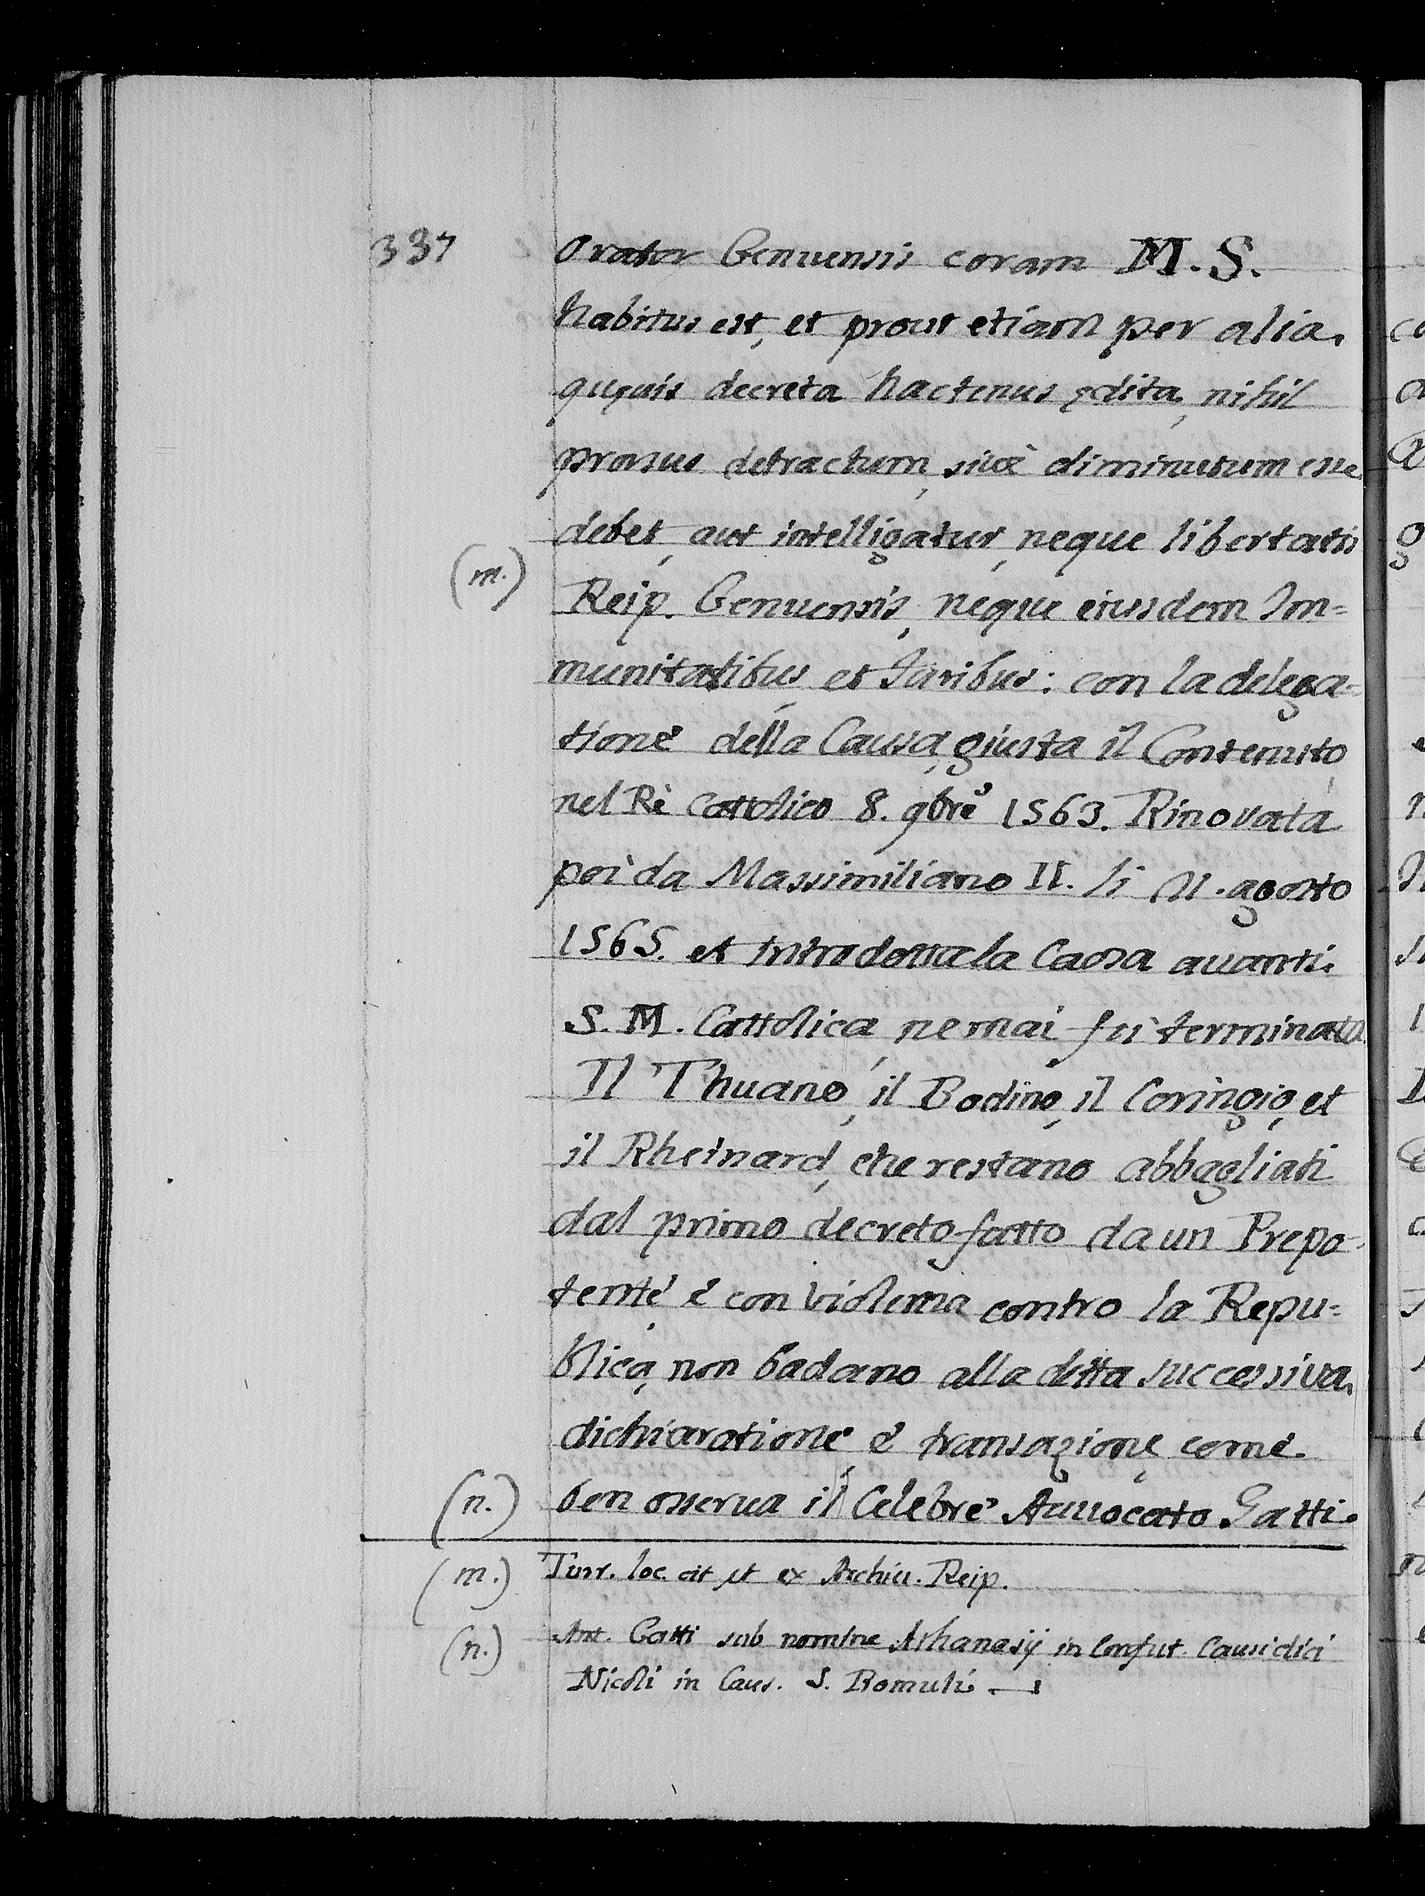 337
Orator Genuensis coram M. S.
habitus est, et prout etiam per alia,
quęuis decreta hactenus ędita, nihil
prorsus detractum, siuè diminutum esse
debet, aut intelligatur, neque libertatis
(m.)
Reip. Genuensis, neque eiusdem Im=
munitatibus, et Iuribus: con la delega=
tione della Causa, giusta il Contenuto
nel Rè Cattolico 8. 9bre 1563. Rinovata
poi da Massimiliano II. li 21. agosto
1565. et introdotta la Causa auanti
S. M. Cattolica, ne mai fù terminata.
Il Thuano, il Bodino, il Coringio, et
il Rheinard, che restano abbagliati
dal primo decreto fatto da un Prepo=
tente è con violenza contro la Repu=
blica, non badano alla detta successiva,
dichiaratione, è transazione, come
(n.) ben osserua il Celebre Auuocato Gatti.
(m.) Turr. loc. cit. ut ex Archiu. Reip.
(n.) Ant. Gatti sub nomine Athanasij in Confut. Causidici
Nicoli in Caus. S. Romuli